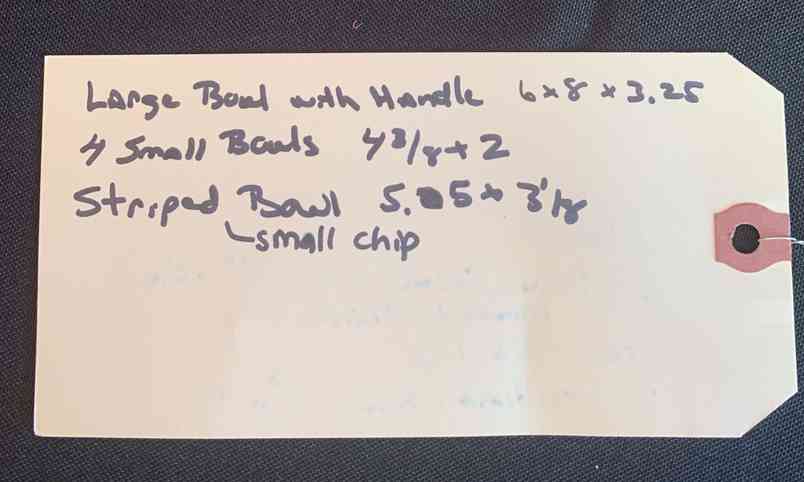 Large Bowl with Handle 6 x 8 x 3.25
4 Small Bowls 4 3/8 x 2
Striped Bowl 5.5 x 3 1/8
small chip